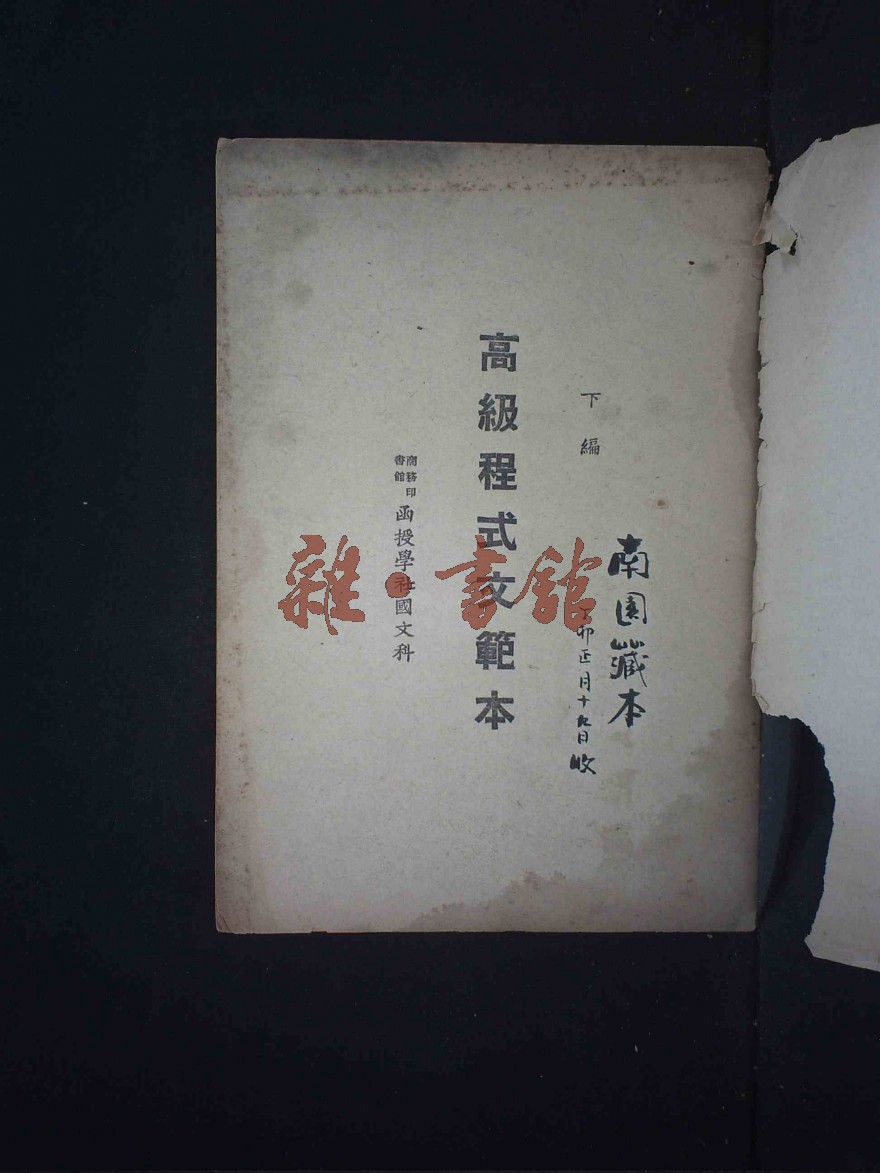 南園藏本
丁卯正月十九日收
下編
高級程式文範本
商務印書館
函授學社國文科
雜·書館